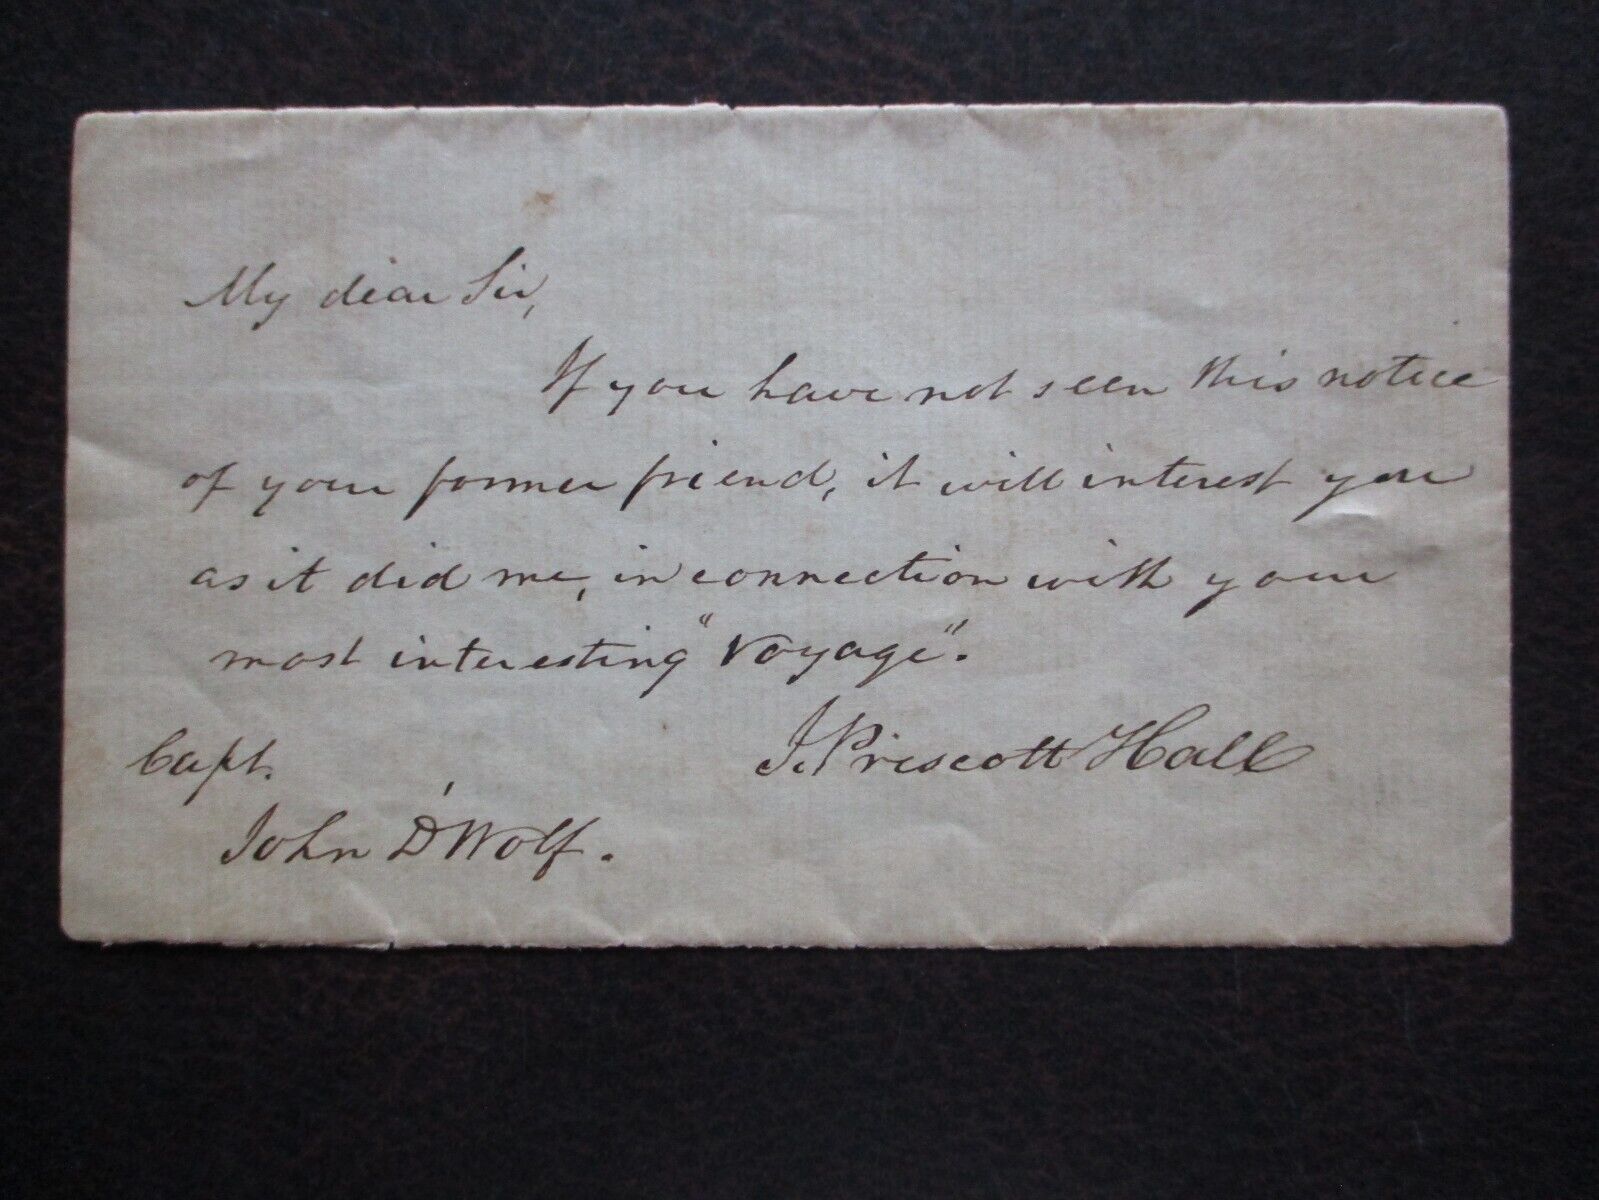 My dear Sir,
If you have not seen this notice
of your former friend, it will interest you
as it did me, in connection with your
most interesting "Voyage".
J. Prescott Hall
Capt.
John D'Wolf.